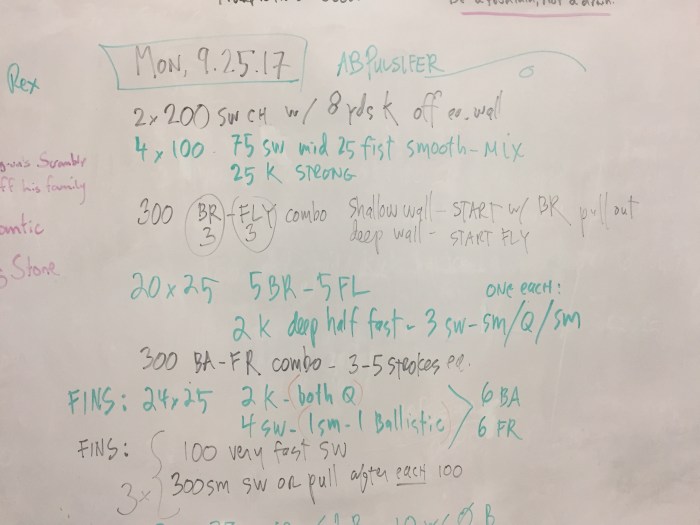 Rex
MON, 9.25.17
AB PULSIFER
2x200 SW CH w/ 8 yds K off ea. wall
4 x 100 75 SW mid 25 fist smooth - Mix
25 K STRONG
300 BR - FLY combo Shallow wall - START w/ BR pull out
3 3 deep wall - START FLY
Stone
20 x 25 5 BR - 5 FL ONE EACH:
2 K deep half fast - 3 SW - sm/Q/sm
300 BA-FR combo - 3-5 strokes ea.
FINS: 24x25 2 K - both Q 6 BA
4 SW - 1 sm - 1 Ballistic 6 FR
FINS: 100 very fast SW
3x 300 sm SW OR pull after each 100